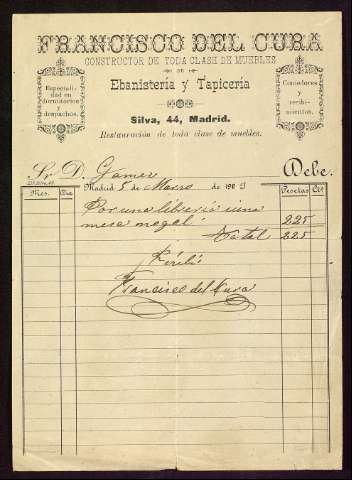 FRANCISCO DEL CURA
CONSTRUCTOR DE TODA CLASE DE MUEBLES
DE
Ebanistería y Tapicería
Especialidad en dormitorios y despachos
Comedores y recibimientos.
Silva, 44, Madrid.
Restauración de toda clase de muebles.
Sr. D. Gomez Debe.
Madrid 5 de Marzo de 1903
Mes. Día Pesetas Cts
Por una libreria i una
mesa nogal. 225
Total 225
Recibí
Francisco del Cura